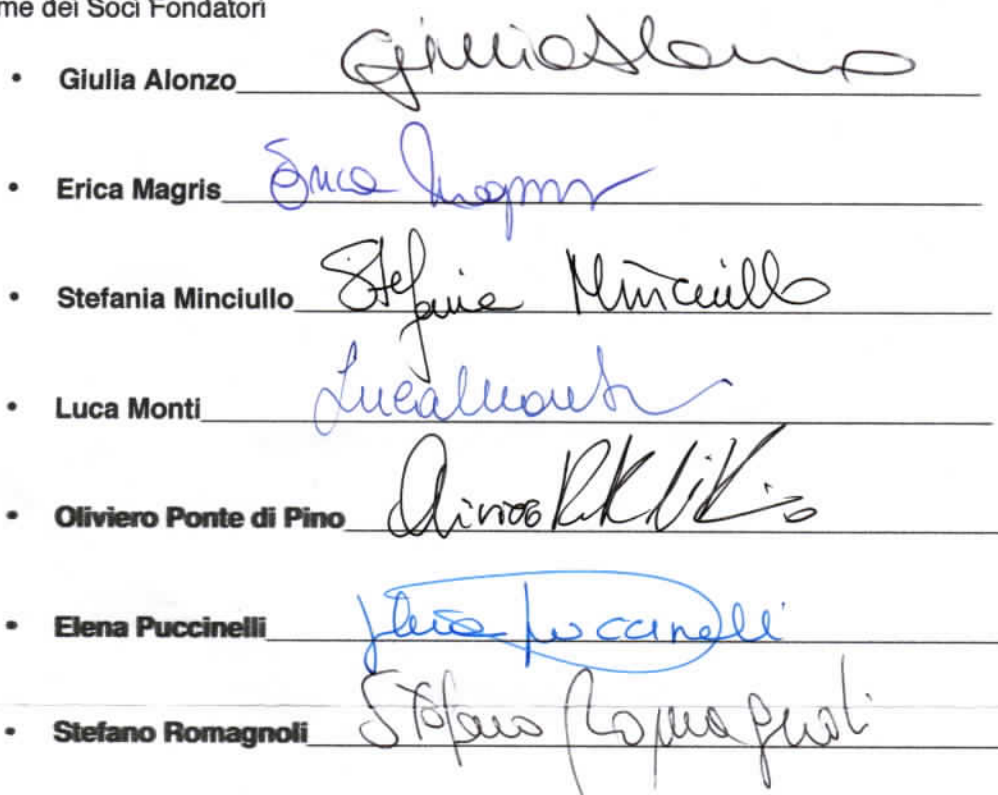 me dei Soci Fondatori
• Giulia Alonzo Giulia Alonzo
• Erica Magris Erica Magris
• Stefania Minciullo Stefania Minciullo
• Luca Monti Luca Monti
• Oliviero Ponte di Pino
• Elena Puccinelli Elena Puccinelli
• Stefano Romagnoli Stefano Romagnoli